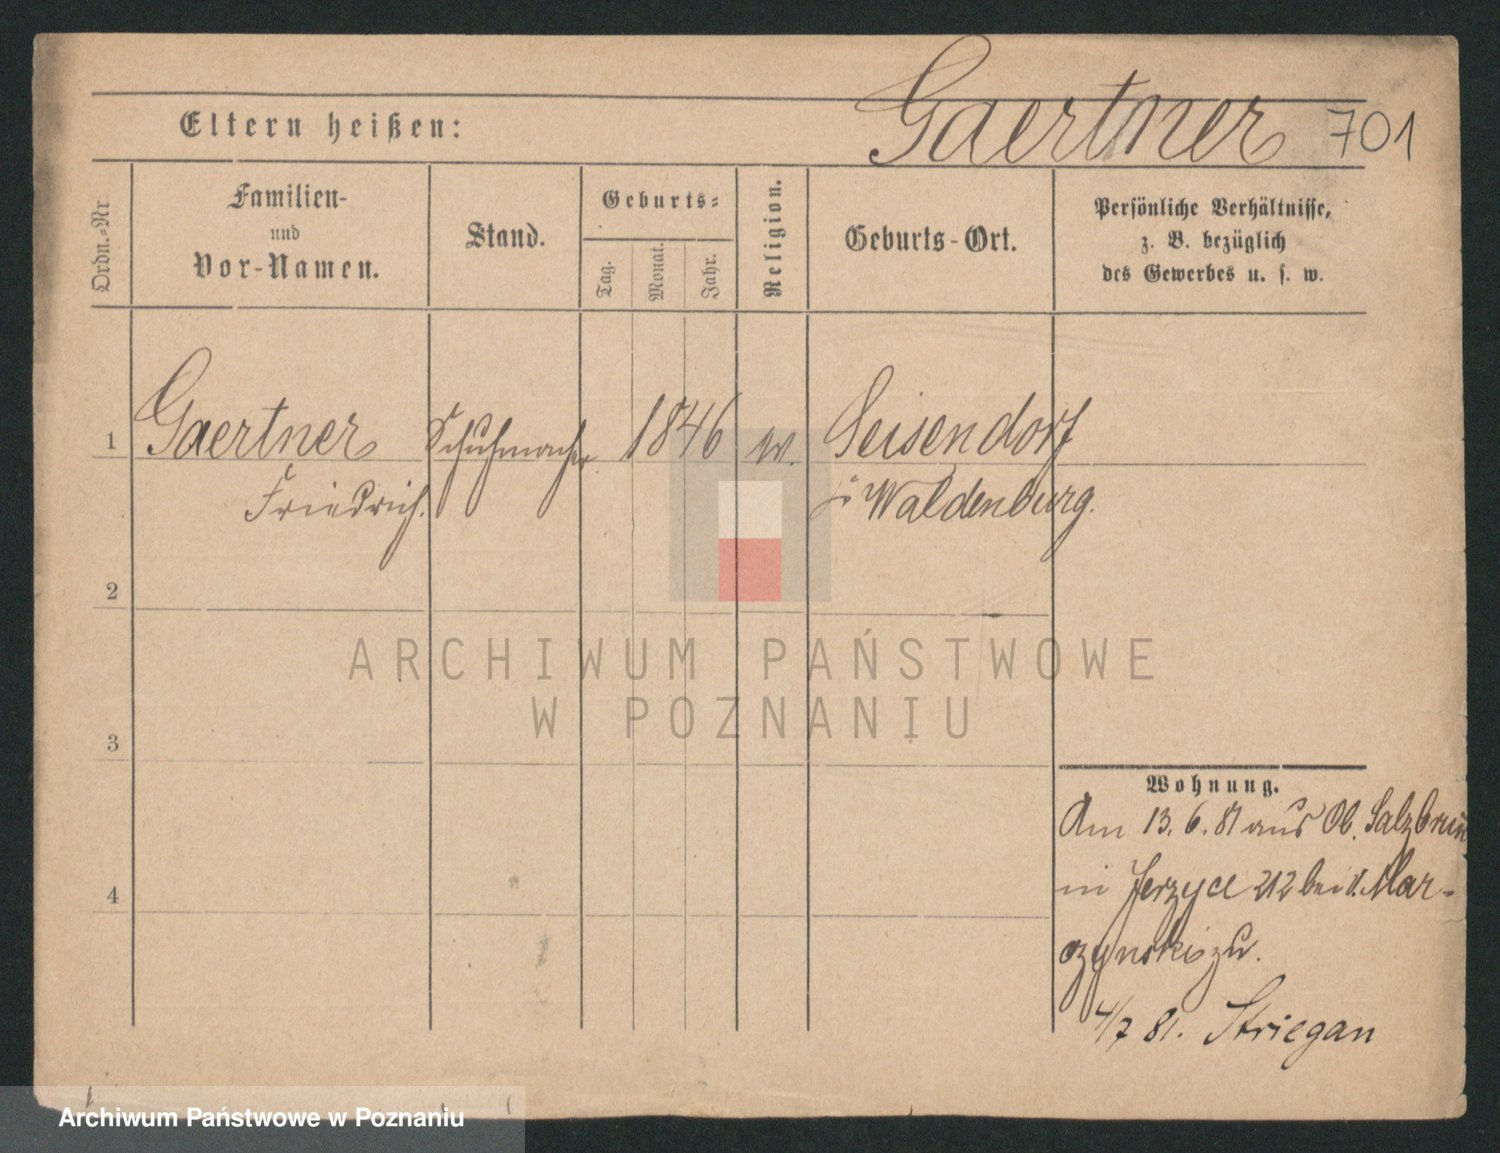 Gaertner 701
Eltern heißen:
Ordn.-Nr.
Familien-
und
Vor-Namen.
Stand.
Geburts-
Tag.
Monat.
Jahr.
Religion.
Geburts-Ort.
Persönliche Verhältnisse,
z. B. bezüglich
des Gewerbes u. s. w.
1 Gaertner Schuhmacher 1846 Seisendorf
Friedrich. Waldenburg.
2
3
4
Wohnung.
Am 13. 6. 81 aus Ob. Salzbrunn
in Jerzyce 212 bei Mar-
czynski zu.
4/7 81. Striegau
ARCHIWUM PAŃSTWOWE
W POZNANIU
Archiwum Państwowe w Poznaniu